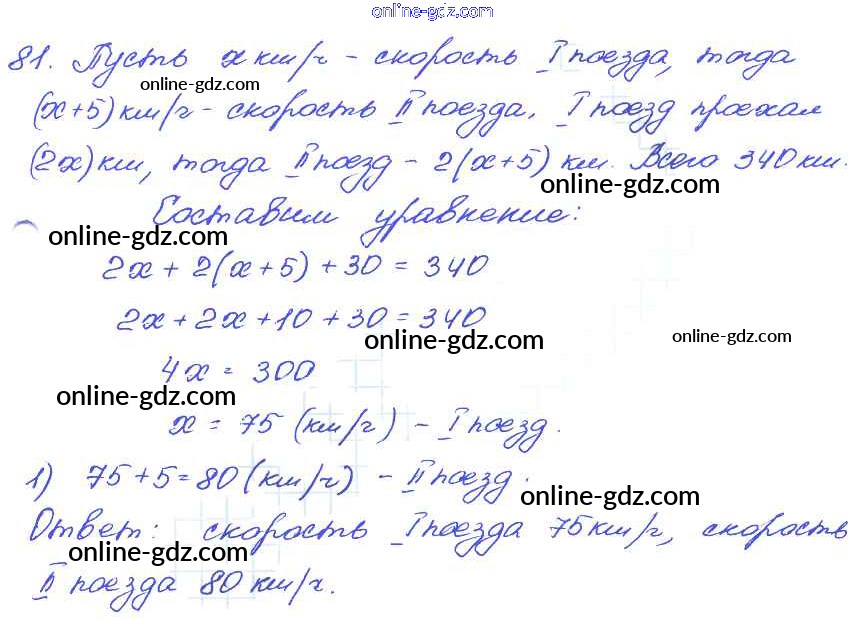 online-gdz.com
81. Пусть x км/ч - скорость I поезда, тогда
online-gdz.com
(x+5) км/ч - скорость II поезда. I поезд проехал
(2x) км, тогда II поезд - 2(x+5) км. Всего 340 км.
online-gdz.com
Составим уравнение:
online-gdz.com
2x + 2(x+5) + 30 = 340
2x + 2x + 10 + 30 = 340
online-gdz.com
online-gdz.com
4x = 300
online-gdz.com
x = 75 (км/ч) - I поезд.
1) 75+5=80 (км/ч) - II поезд.
online-gdz.com
Ответ: скорость I поезда 75 км/ч, скорость
online-gdz.com
II поезда 80 км/ч.